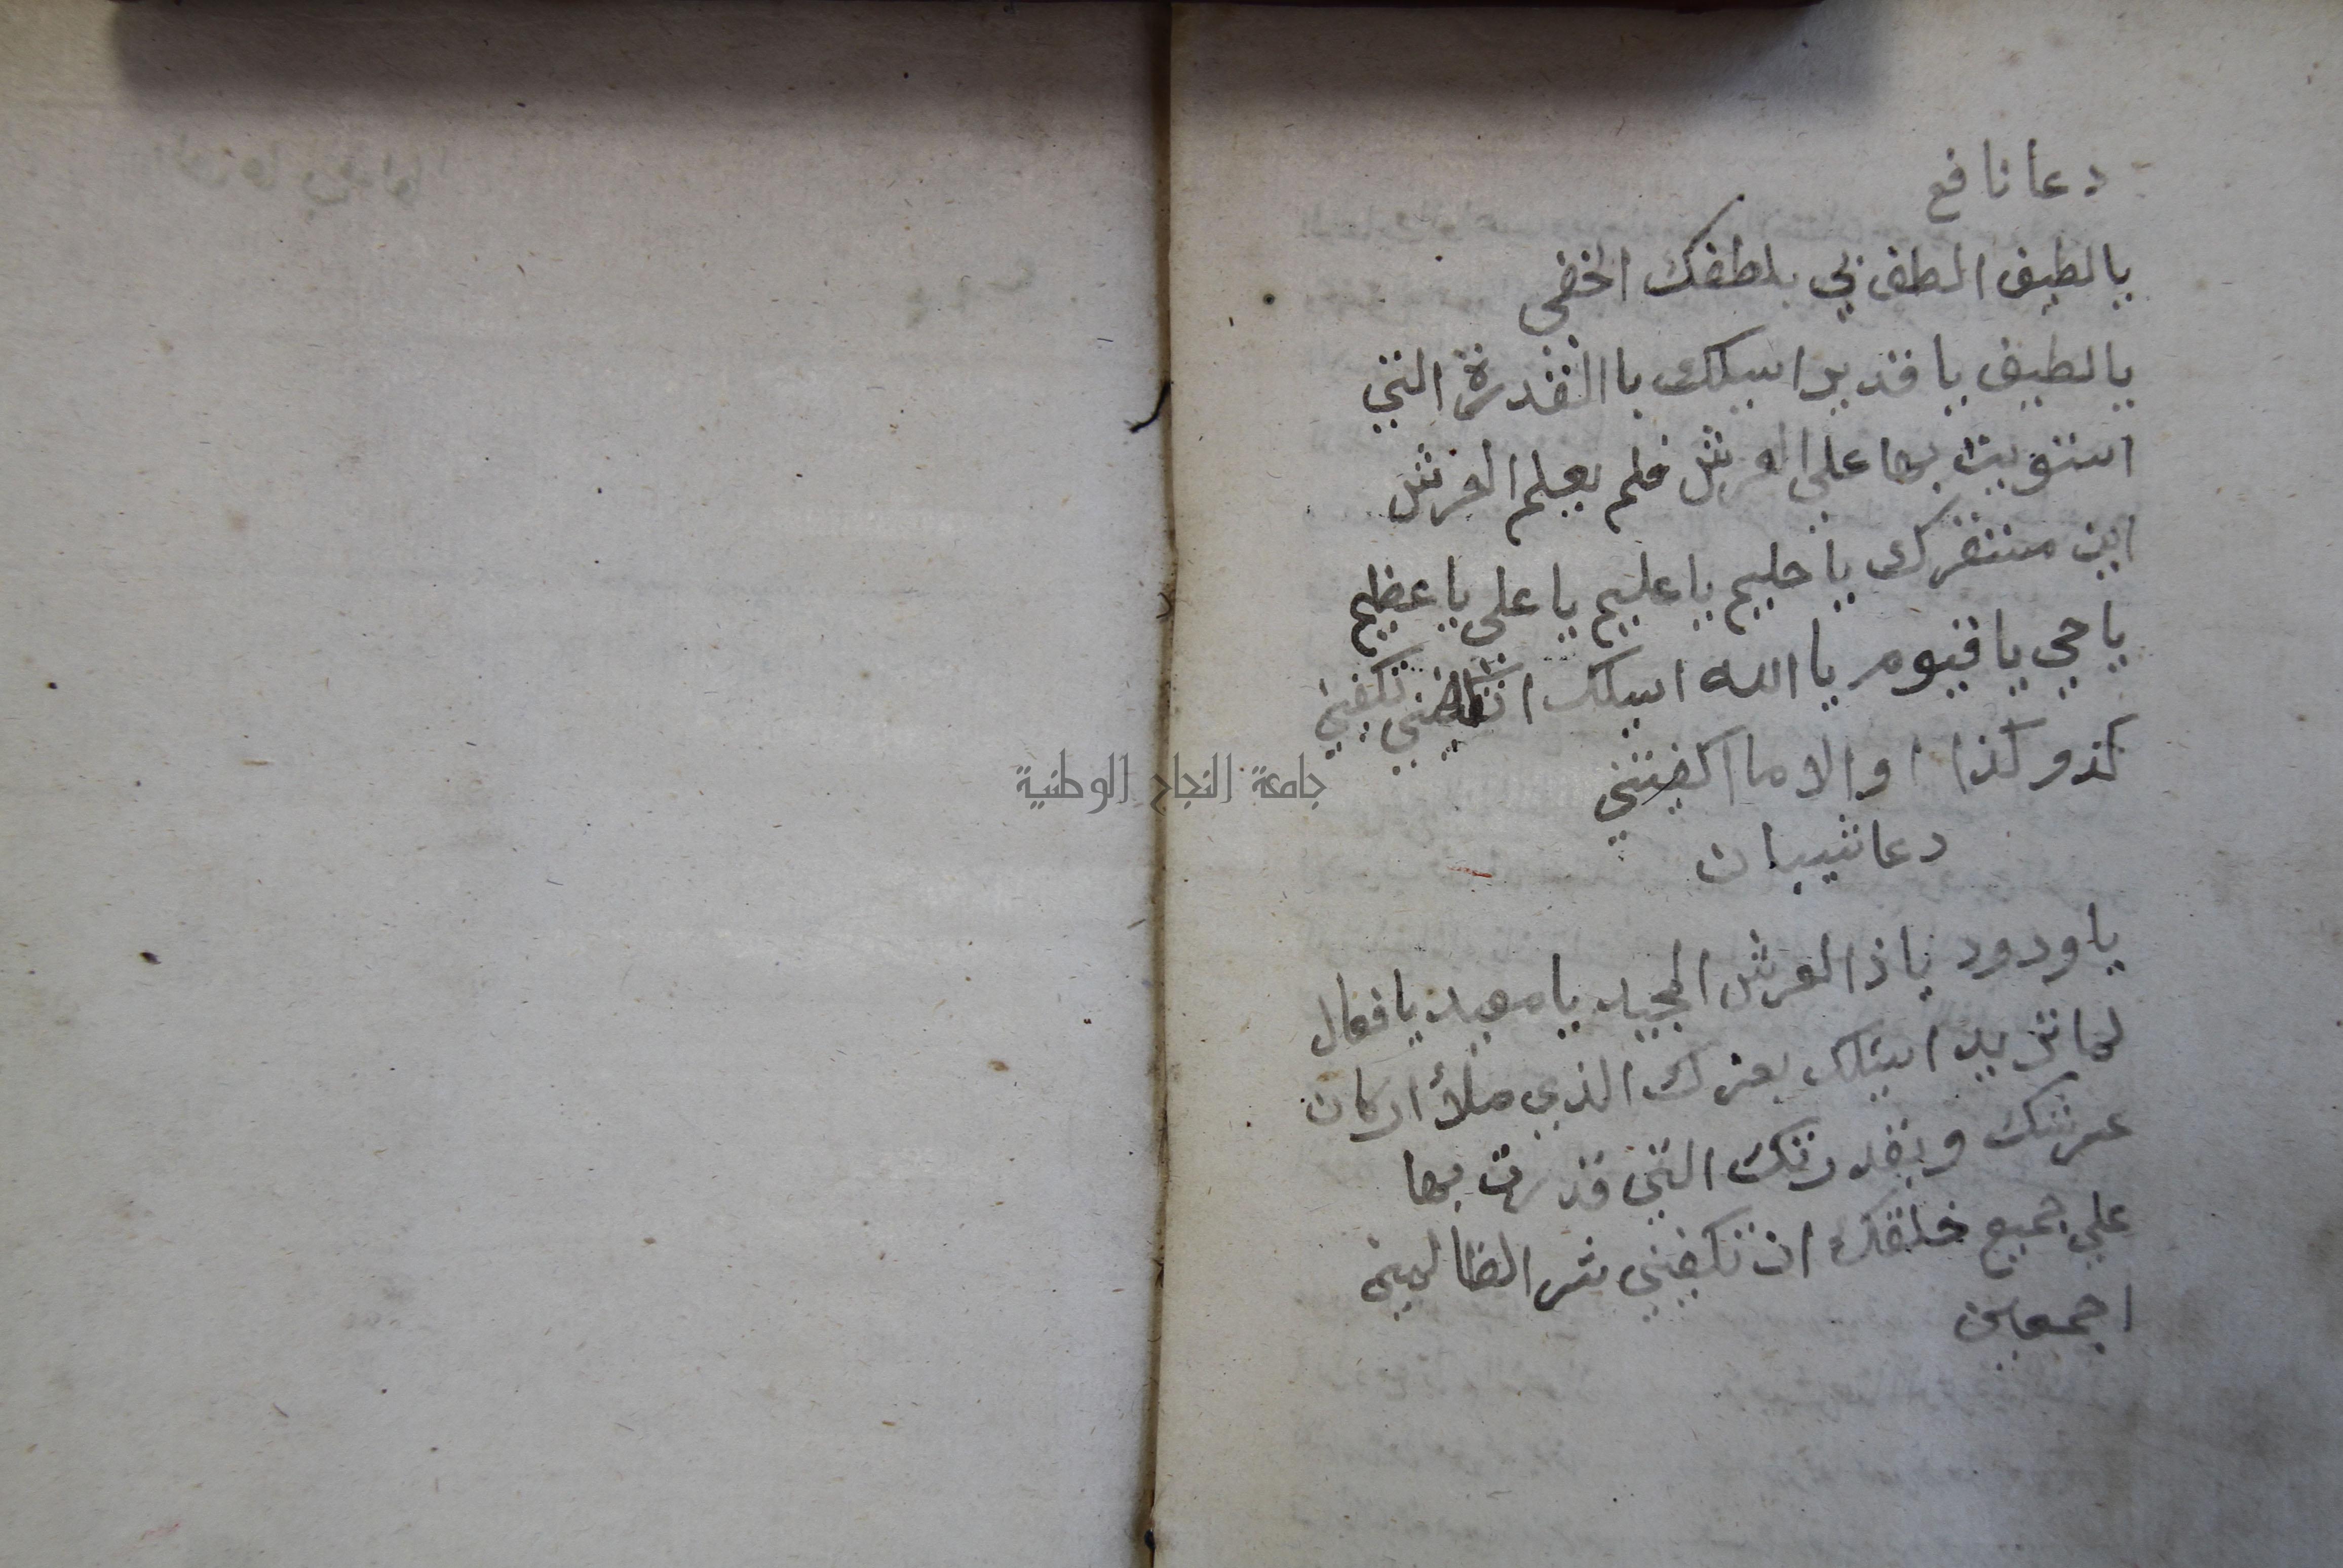 دعا نافع
يا لطيف الطف بي بلطفك الخفي
يا لطيف يا قدير اسيلك با القدرة التي
استويت بها علي العرش فلم يعلم العرش
اين مستقرك يا حليم يا عليم يا علي يا عظيم
يا حي يا قيوم يا الله اسيلك ان تكفيني
كذو كذا او الاما اكفيتني
دعا شيبان
يا ودود يا ذا العرش المجيد يا معيد يا فعال
لما تريد اسئلك بعزك الذي ملأ اركان
عرشك وبقدرتك التي قدرت بها
علي جميع خلقك ان تكفيني شر الظالمين
اجمعين
جامعة النجاح الوطنية